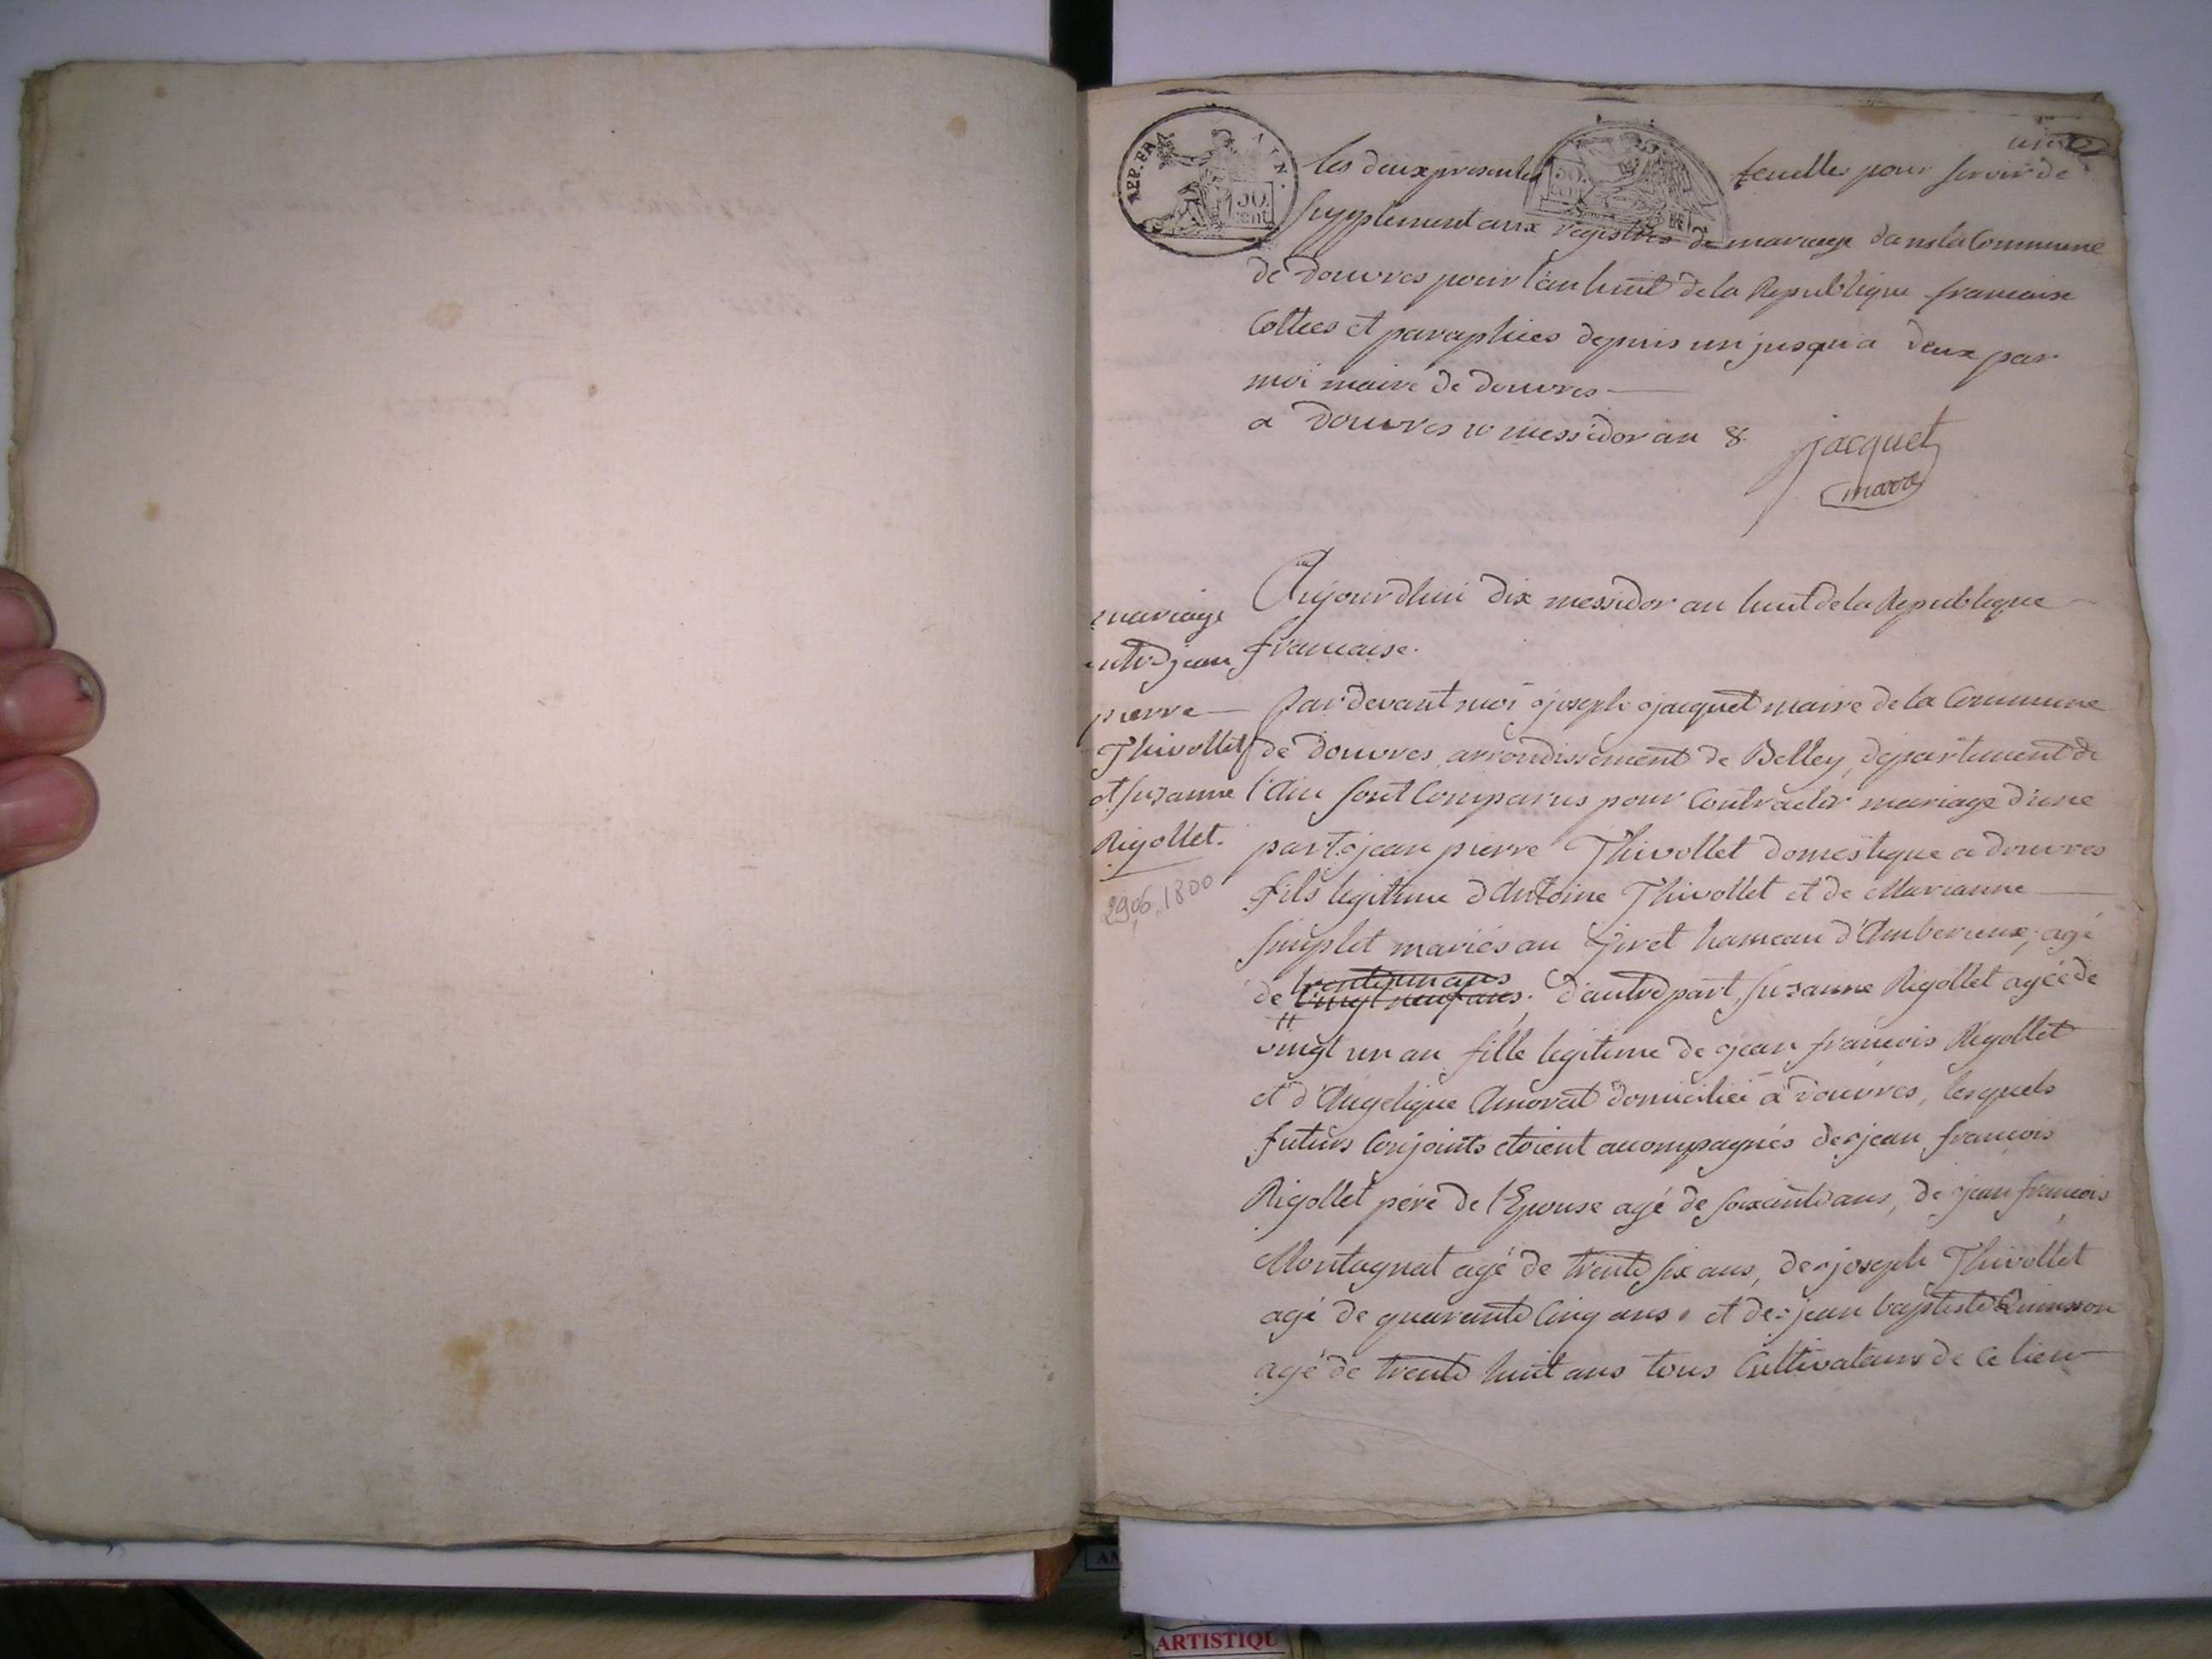 REP. FRA
50. cent
50. cent
les deux presentes feuilles pour servir de
supplement aux registres de mariage dans la Commune
de Douvres pour l'an huit de la Republique francaise
Cottees et paraphées depuis un jusqu'a deux par
moi maire de douvres
a Douvres 10 messidor an 8.
jacquet
maire
mariage
entre jean
pierre
Thivollet
et suzanne
Rigollet.
29.06.1800
Aujourdhui dix messidor an huit de la Republique
francaise.
Par devant moi joseph jacquet maire de la Commune
de douvres, arrondissement de Belley, departement de
l'Ain sont Comparus pour Contracter mariage d'une
part jean pierre Thivollet domestique a douvres
fils legitime d'Antoine Thivollet et de Marianne
mariés au hameau d'Amberieux; agé
trente un ans
de vingt neuf ans. D'autre part, suzanne Rigollet agée de
vingt un an fille legitime de jean françois Rigollet
et d'Angelique domicilié à douvres, lesquels
futurs Conjoints etoient accompagnés de jean françois
Rigollet père de l'Epouse agé de soixante ans, de jean francois
Montagnat agé de trente six ans, de joseph Thivollet
agé de quarante Cinq ans, et de jean baptiste Quinsson
agé de trente huit ans tous Cultivateurs de ce lieu
ARTISTIQU